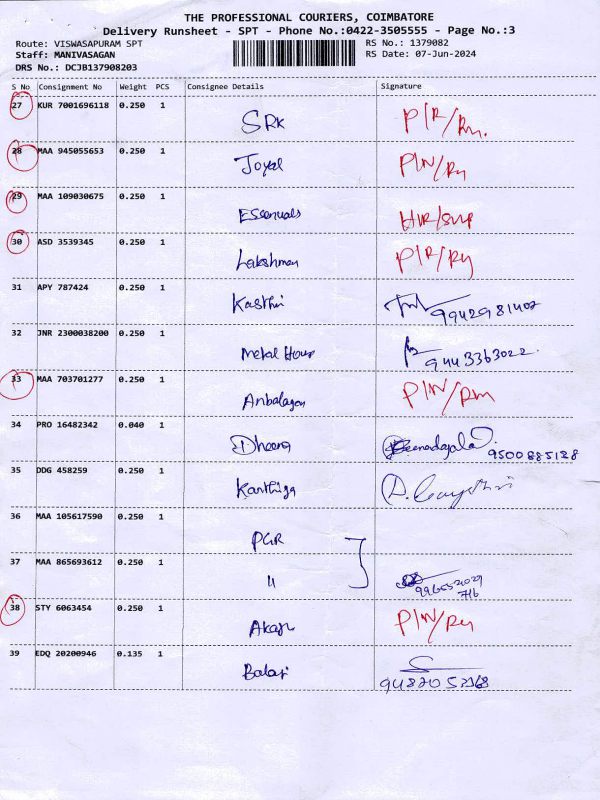 THE PROFESSIONAL COURIERS, COIMBATORE
Delivery Runsheet - SPT - Phone No.:0422-3505555 - Page No.:3
Route: VISWASAPURAM SPT RS No.: 1379082
Staff: MANIVASAGAN RS Date: 07-Jun-2024
DRS No.: DCJB137908203
S No Consignment No Weight PCS Consignee Details Signature
27 KUR 7001696118 0.250 1 SRK P/R/Rm.
28 MAA 945055653 0.250 1 Joyel P/N/Rm
29 MAA 109030675 0.250 1 Essenuals
30 ASD 3539345 0.250 1 Lakshman P/R/Rm
31 APY 787424 0.250 1 Kasthri 9942981402
32 JNR 2300038200 0.250 1 Metal House 9443363022.
33 MAA 703701277 0.250 1 Anbalagan P/N/Rm
34 PRO 16482342 0.040 1 Dheena 9500885128
35 DDG 458259 0.250 1 Karthiga
36 MAA 105617590 0.250 1 PGR
37 MAA 865693612 0.250 1 "
38 STY 6063454 0.250 1 Akash P/N/Rm
39 EDQ 20200946 0.135 1 Balaji